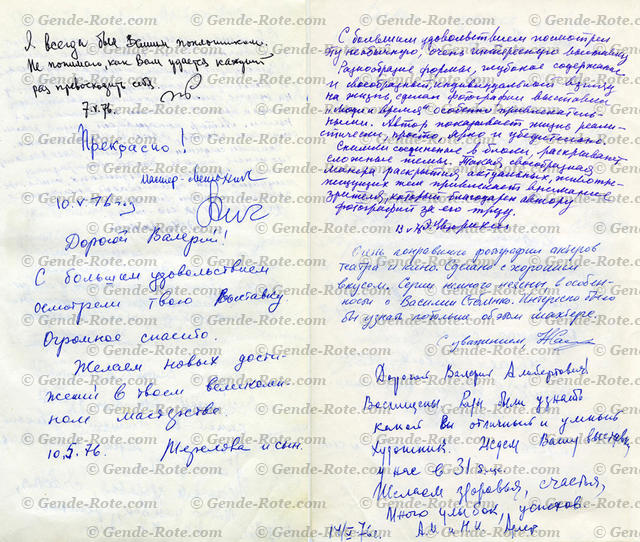 Я всегда был Вашим поклонником.
Не понимаю, как Вам удается каждый
раз превосходить себя.
7.V.76.
Прекрасно!
10.V-76
Дорогой Валерий!
С большим удовольствием
осмотрели твою выставку
Огромное спасибо.
Желаем новых дости-
жений в твоем великолеп-
ном мастерстве.
10.5.76. и сын.
С большим удовольствием посмотрел
эту необычную, очень интересную выставку
Разнообразие формы, глубокое содержание
и своеобразный индивидуальный взгляд
на жизнь сделал фотографии выставки
"Люди и время" особенно привлекатель-
ными. Автор показывает жизнь реали-
стически, просто, ярко и убедительно.
Снимки соединенные в блоки, раскрывают
сложные темы. Такая своеобразная
манера раскрытия актуальных, животре-
пещущих тем привлекает внимание
зрителя, который благодарен автору
фотографий за его труд.
Очень понравились фотографии актеров
театра и кино. Сделано с хорошим
вкусом. Серии много в особен-
ности о Василии Было
бы узнать побольше об этом шахтере.
С уважением,
Дорогой Валерий Альбертович!
Восхищены, рады были узнать
какой Вы отличный и умный
художник. Ждем Вашу выставку
у нас в 31
Желаем здоровья, счастья,
Много улыбок, успехов
14/V 76г. А.М. и Н.И.
© Gende-Rote.com